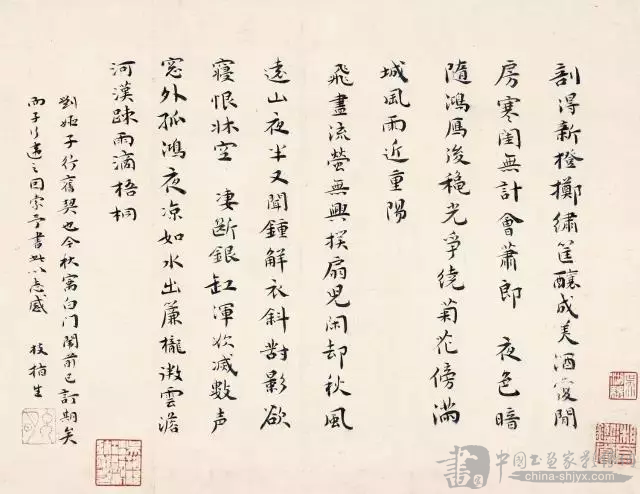 剖得新橙擲繡筐釀成美酒覆閒
房寒閨無計會蕭郎 夜色暗
隨鴻雁後穐光爭繞菊花傍滿
城風雨近重陽
飛盡流螢無興撲扇兒閑却秋風
遠山夜半又聞鐘解衣斜對影欲
寢恨牀空 凄斷銀缸渾欲減數声
窓外孤鴻夜凉如水出簾櫳微雲澹
河漢踈雨滴梧桐
劉姬子行舊契也今秋寓白门闈前已訂期矣
而子行遣之因索予書此以志感 枝栖生
中国书画家影
china-shjyx.com